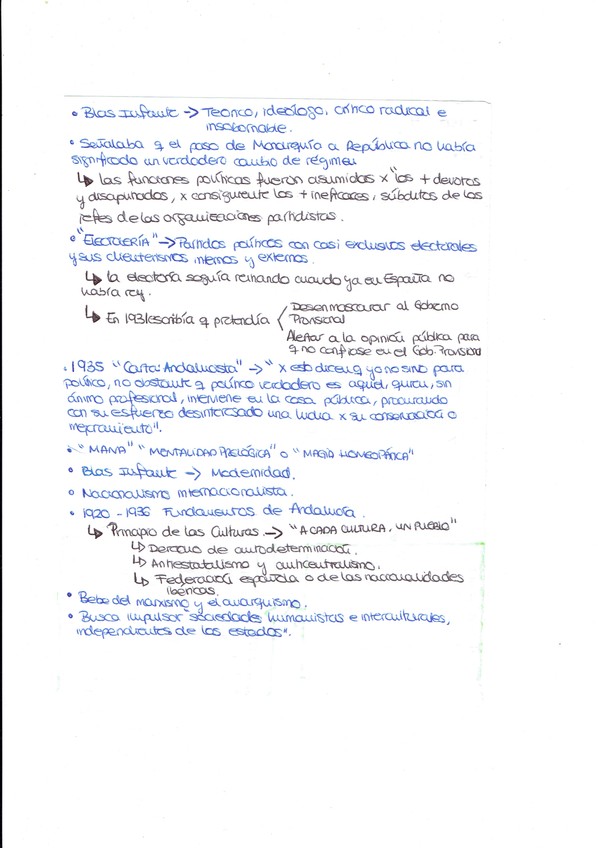 • Blas Infante → Teórico, ideólogo, crítico radical e
insobornable.
• Señalaba q el paso de Monarquía a República no había
significado un verdadero cambio de régimen
↳ las funciones políticas fueron asumidas x "los + devotos
y disciplinados, x consiguiente los + ineficaces, súbditos de los
jefes de las organizaciones partidistas.
• "ELECTOLERÍA" → Partidos políticos con casi exclusivos electorales
y sus clientelismos internos y externos.
↳ la electoría seguía reinando cuando ya en España no
había rey.
↳ En 1931 escribía q pretendía
Desenmascarar al Gobierno
Provisional
Alertar a la opinión pública para
q no confiase en el Gob. Provisional
• 1935 "Carta Andalucista" → "x esto dicen q yo no sirvo para
político, no obstante q político verdadero es aquel, quien, sin
ánimo profesional, interviene en la cosa pública, procurando
con su esfuerzo desinteresado una lucha x su conservación o
mejoramiento".
• "MANA" "MENTALIDAD PRELÓGICA" o "MAGIA HOMEOPÁTICA"
• Blas Infante → Modernidad.
• Nacionalismo internacionalista.
• 1920 - 1936 Fundamentos de Andalucía.
↳ Principio de las Culturas. → "A CADA CULTURA, UN PUEBLO"
↳ Derecho de autodeterminación.
↳ Antiestatalismo y anticentralismo.
↳ Federación española o de las nacionalidades
ibéricas.
• Bebe del marxismo y el anarquismo.
• Busca impulsar "sociedades humanistas e interculturales,
independientes de los estados".